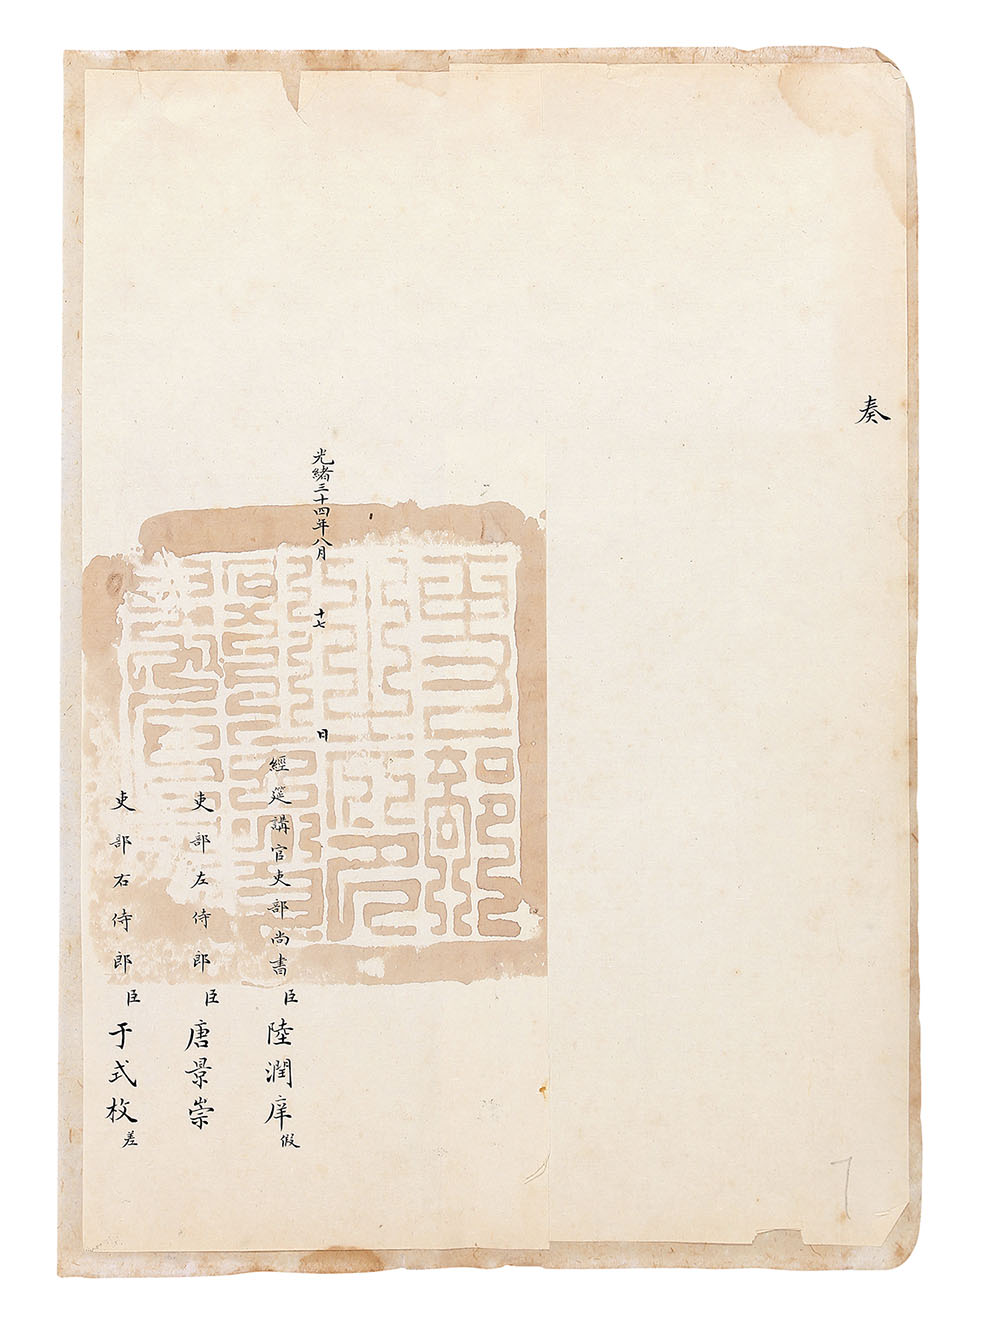 奏
光緒三十四年八月十七日
經筵講官吏部尚書臣陸潤庠假
吏部左侍郎臣唐景崇
吏部右侍郎臣于式枚差
7